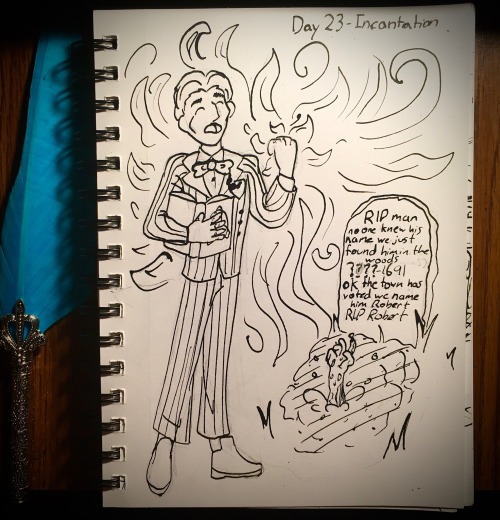 Day 23-Incantation
RIP man
no one knew his
name we just
found him in the
woods
????-1691
ok the town has
voted we name
him Robert
RIP Robert